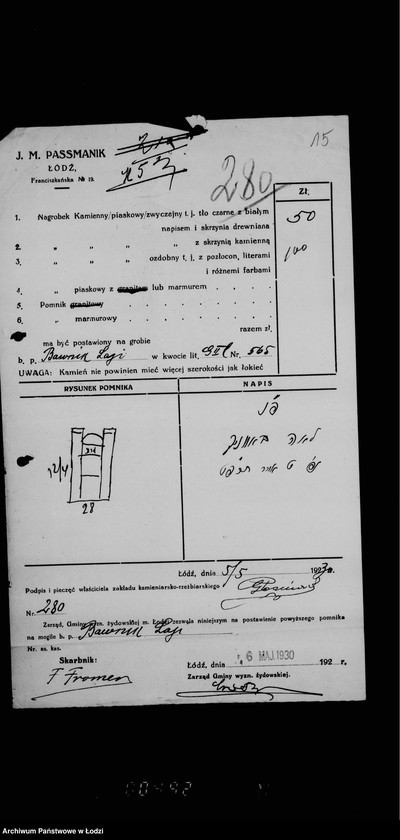 15
J. M. PASSMANIK
ŁÓDŹ,
Franciszkańska № 13.
280
Zł.
1. Nagrobek Kamienny/piaskowy/zwyczajny t. j. tło czarne z białym
napisem i skrzynia drewniana 50
2. „ „ „ „ z skrzynią kamienną
3. „ „ „ ozdobny t. j. z pozłocon. literami 100
i różnemi farbami
4. „ piaskowy z granitem lub marmurem . . . .
5. Pomnik granitowy . . . . . . . .
6. „ marmurowy . . . . . . .
razem zł.
ma być postawiony na grobie
b. p. Bawnik Laji w kwocie lit. Nr. 565
UWAGA: Kamień nie powinien mieć więcej szerokości jak łokieć
RYSUNEK POMNIKA
NAPIS
פ״נ
לאה
12/4
28
Łódź, dnia 5/5 1930 r.
Podpis i pieczęć właściciela zakładu kamieniarsko-rzeźbiarskiego
Nr. 280
Zarząd, Gminy wyzn. żydowskiej m. Łodzi zezwala niniejszym na postawienie powyższego pomnika
na mogile b. p. Bawnik Laji
Nr. as. kas.
Skarbnik:
F Fromer
Łódź, dnia 6 MAJ 1930 192 r.
Zarząd Gminy wyzn. żydowskiej.
Archiwum Państwowe w Łodzi